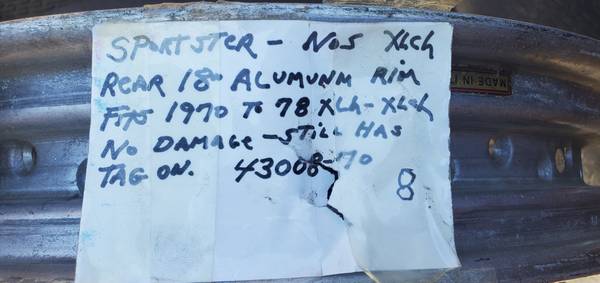 SPORTSTER - NOS XLCH
REAR 18" ALUMUNM RIM
FITS 1970 TO 78 XLH-XLCH
NO DAMAGE - STILL HAS
TAG ON. 43008-70
8
MADE IN